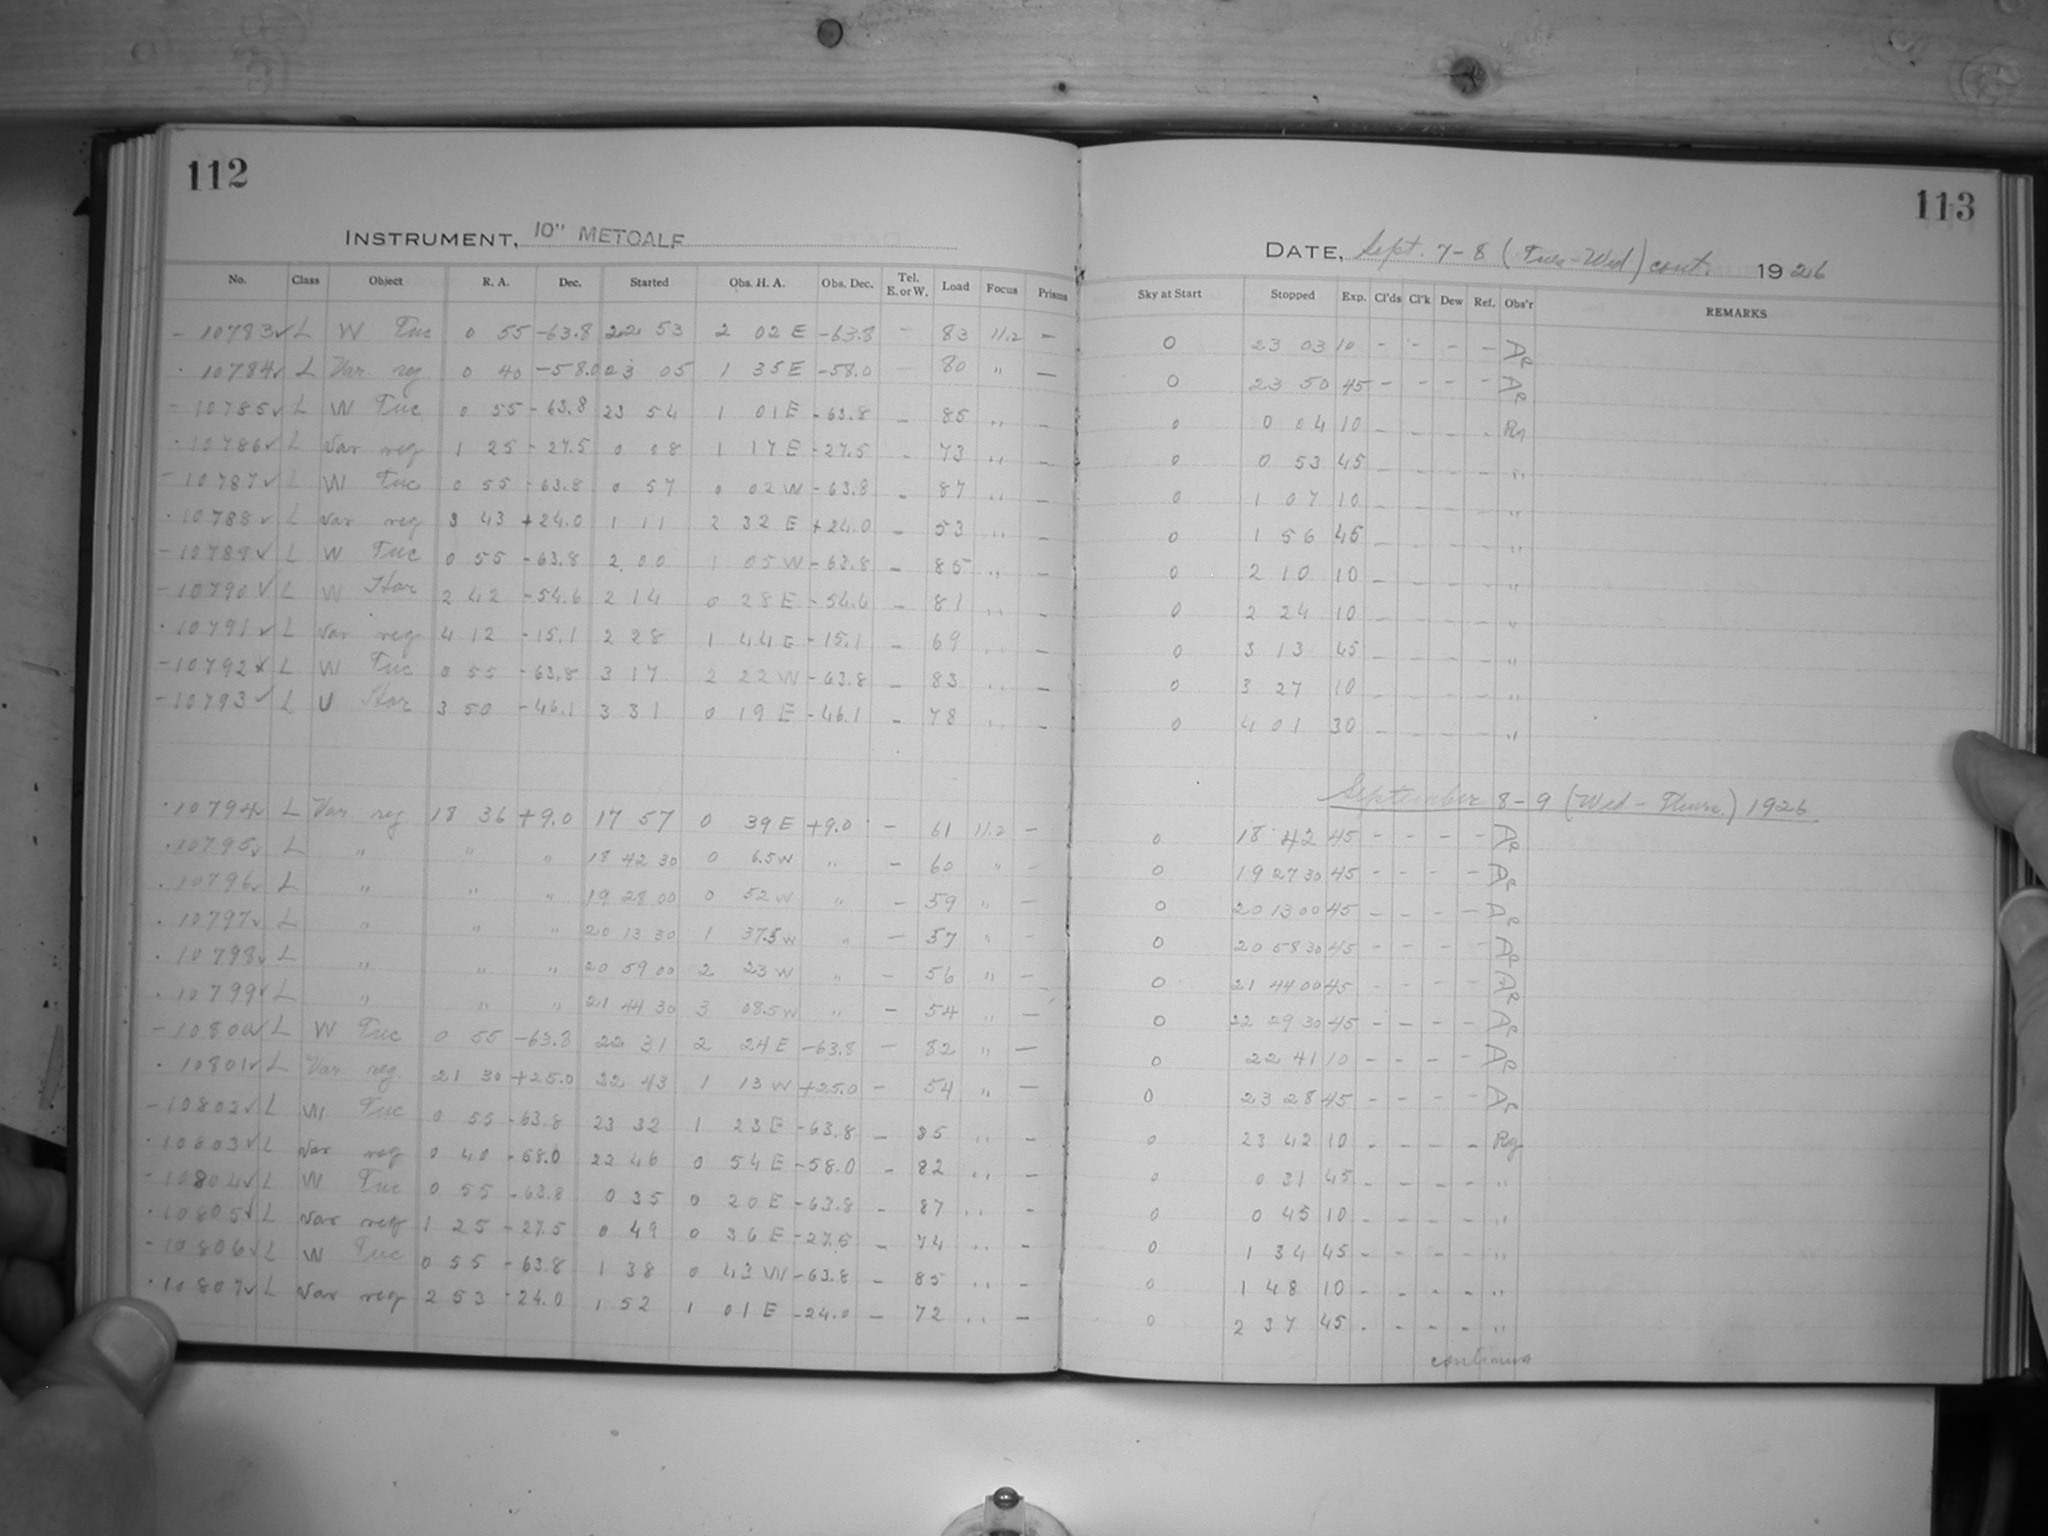 112
INSTRUMENT, 10" METCALF
No. Class Object R. A. Dec. Started Obs. H. A. Obs. Dec. Tel. E. or W. Load Focus Prisms
- 10783 ✓ L W Tuc 0 55 -63.8 22 53 2 02 E -63.8 - 83 11.2 -
· 10784 ✓ L Var. reg. 0 40 -58.0 23 05 1 35 E -58.0 80 " -
- 10785 ✓ L W Tuc 0 55 -63.8 23 54 1 01 E -63.8 - 85 " -
· 10786 ✓ L Var reg 1 25 -27.5 0 08 1 17 E -27.5 - 73 " -
- 10787 ✓ L W Tuc 0 55 -63.8 0 57 0 02 W -63.8 - 87 " -
· 10788 ✓ L Var reg 3 43 +24.0 1 11 2 32 E +24.0 - 53 " -
- 10789 ✓ L W Tuc 0 55 -63.8 2 00 1 05 W -63.8 - 85 " -
- 10790 ✓ L W Hor 2 42 -54.6 2 14 0 28 E -54.6 - 81 " -
· 10791 ✓ L Var reg 4 12 -15.1 2 28 1 44 E -15.1 - 69 " -
- 10792 ✓ L W Tuc 0 55 -63.8 3 17 2 22 W -63.8 - 83 " -
- 10793 ✓ L U Hor 3 50 -46.1 3 31 0 19 E -46.1 - 78 " -
· 10794 ✓ L Var. reg. 18 36 +9.0 17 57 0 39 E +9.0 - 61 11.2 -
· 10795 ✓ L " " " 18 42 30 0 6.5 W " - 60 " -
· 10796 ✓ L " " " 19 28 00 0 52 W " - 59 " -
· 10797 ✓ L " " " 20 13 30 1 37.5 W " - 57 " -
· 10798 ✓ L " " " 20 59 00 2 23 W " - 56 " -
· 10799 ✓ L " " " 21 44 30 3 08.5 W " - 54 " -
- 10800 ✓ L W Tuc 0 55 -63.8 22 31 2 24 E -63.8 - 82 " -
· 10801 ✓ L Var reg. 21 30 +25.0 22 43 1 13 W +25.0 - 54 " -
- 10802 ✓ L W Tuc 0 55 -63.8 23 32 1 23 E -63.8 - 85 " -
· 10803 ✓ L Var reg 0 40 -58.0 23 46 0 54 E -58.0 - 82 " -
- 10804 ✓ L W Tuc 0 55 -63.8 0 35 0 20 E -63.8 - 87 " -
· 10805 ✓ L Var reg 1 25 -27.5 0 49 0 36 E -27.5 - 74 " -
- 10806 ✓ L W Tuc 0 55 -63.8 1 38 0 43 W -63.8 - 85 " -
· 10807 ✓ L Var reg 2 53 -24.0 1 52 1 01 E -24.0 - 72 " -
113
DATE, Sept. 7-8 (Tues-Wed) cont. 1926
Sky at Start Stopped Exp. Cl'ds Cl'k Dew Ref. Obs'r REMARKS
0 23 03 10 - - - -
0 23 50 45 - - - -
0 0 04 10 - - - -
0 0 53 45 - - - - "
0 1 07 10 - - - - "
0 1 56 45 - - - - "
0 2 10 10 - - - - "
0 2 24 10 - - - - "
0 3 13 45 - - - - "
0 3 27 10 - - - - "
0 4 01 30 - - - - "
September 8-9 (Wed-Thurs.) 1926
0 18 42 45 - - - -
0 19 27 30 45 - - - -
0 20 13 00 45 - - - -
0 20 58 30 45 - - - -
0 21 44 00 45 - - - -
0 22 29 30 45 - - - -
0 22 41 10 - - - -
0 23 28 45 - - - -
0 23 42 10 - - - -
0 0 31 45 - - - - "
0 0 45 10 - - - - "
0 1 34 45 - - - - "
0 1 48 10 - - - - "
0 2 37 45 - - - - "